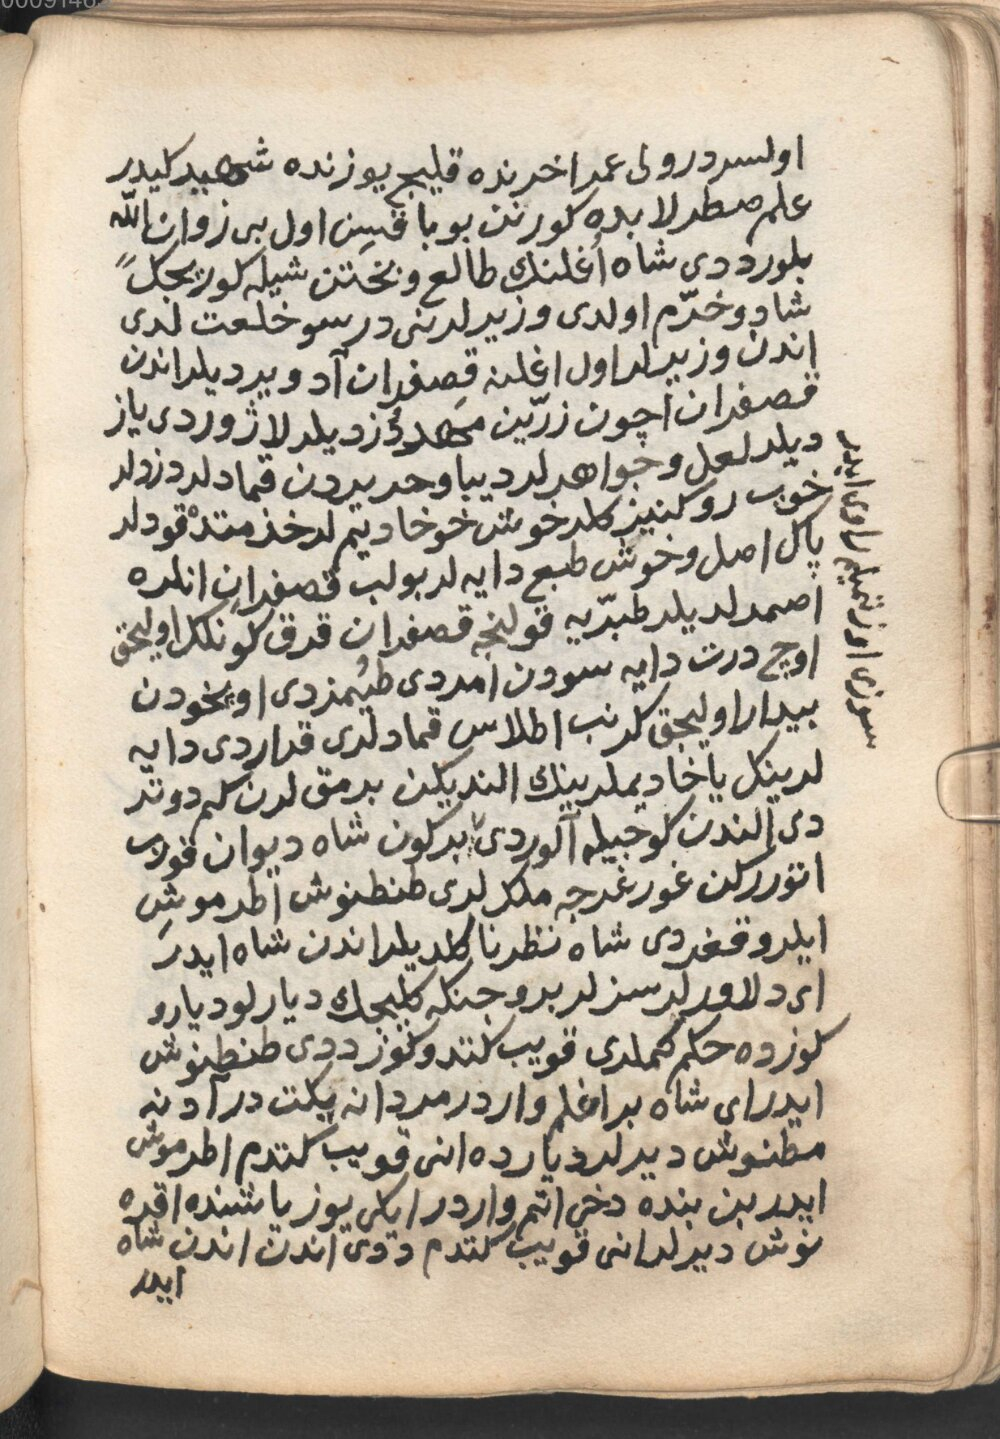 اولسردرولی عمر اخرنده قلیج یوزنده شهید کلیدر
علم صطرلابده کورنن بو باقسن اول بی زوان الله
بلور ددی شاه أغلنك طالع و بختن شیله کوریجك
شاد و خرّم اولدی وزیرلرنی درسو خلعت لدی
اندن وزیرلر اول اغلنه قصفران آد ویردیلر اندن
قصفران اچون زرّین مهد دزدیلر لاژوردی یاز
دیلر لعل و جواهرلر دیبا و حریردن قمادلر دزدلر
خوب رو کنیزکلر خوش خو خادیم لر خذمتده قودلر
پاك اصل و خوش طبع دایه لر بولب قصفران انلره
اصمرلدیلر طبرّیه قولنجه قصفران قرق کونلك اولیجق
اوچ درت دایه سودن امردی طیمزدی اویخودن
بیدار اولیجق کرنب اطلاس قمادلری قراردی دایه
لرینك یا خادیملرینك الندیکن برمق لرن کم دوتر
دی الندن کوجیله آلوردی بر کون شاه دیوان قورب
اتوررکن غورغرجه ملکلری طنطنوش اطرموش
ایلرو قغردی شاه نظرنا کلدیلر اندن شاه ایدر
ای دلاورلر سزلر برو جنکه کلیجك دیارلو دیارو
کوزده حکم کملری قویب کتدوکوز ددی طنطنوش
ایدر ای شاه بر اغلم واردر مردانه یکت در آدنه
مطنوش دیرلر دیارده انی قویب کتدم اطرموش
ایدر بن بنده دخی اتم واردر ایکی یوز یاشنده اقره
نوش دیرلر انی قویب کتدم ددی اندن اندن شاه
ایدر
سوزی اوزتمیم راوی ایدر